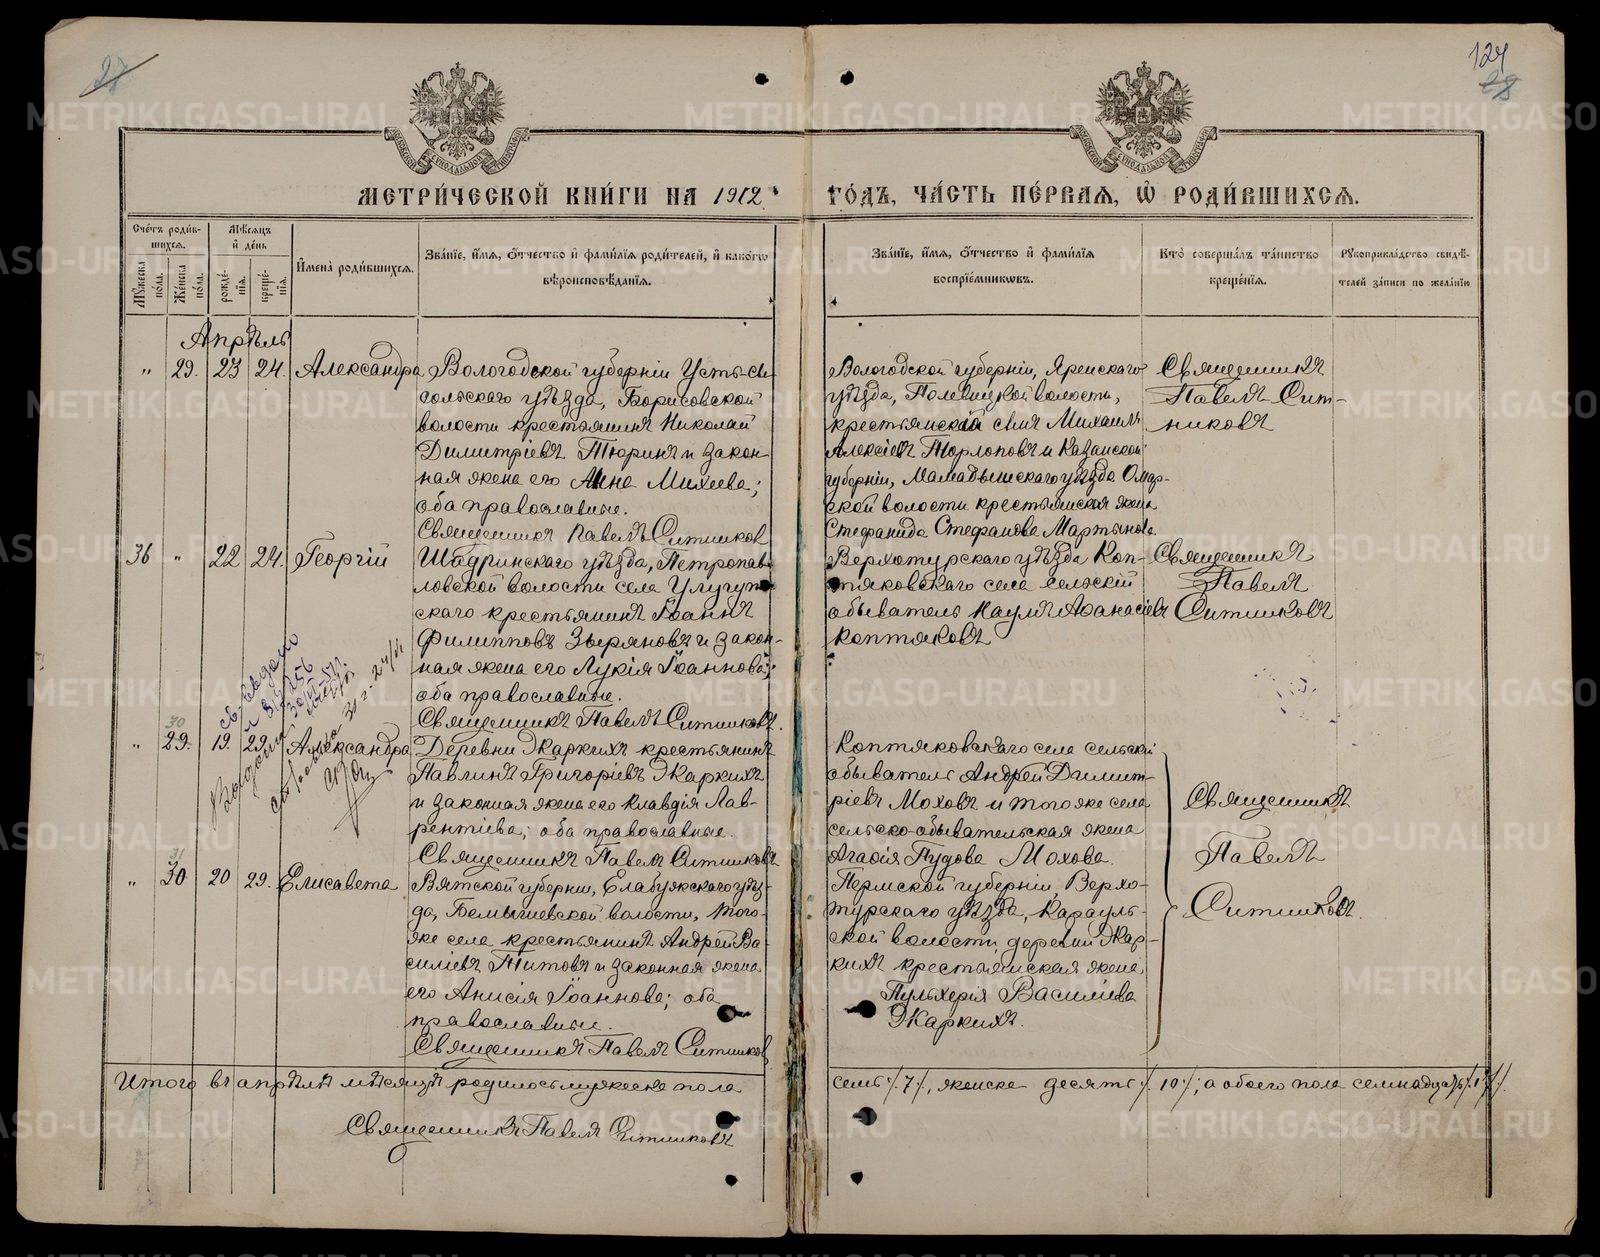 27
124
28
МЕТРИ́ЧЕСКОЙ КНИ́ГИ НА 1912
ГО́ДЪ, ЧА́СТЬ ПЕ́РВАЯ, Ѡ҆ РОДИ́ВШИХСЯ.
Сче́тъ роди́в-
шихся.
Мѣ́сяцъ
и҆ де́нь
Му́жеска по́ла.
Же́нска по́ла.
рожде́-
нїя.
креще́-
нїя.
И҆мена̀ роди́вшихся.
Зва́нїе, и҆́мя, ѻ҆́тчество и҆ фами́лїя роди́телей, и҆ како́гѡ
вѣроисповѣ́данїя.
Зва́нїе, и҆́мя, ѻ҆́тчество и҆ фами́лїя
воспрїе́мникѡвъ.
Кто̀ соверша́лъ та́инство
креще́нїя.
Рукоприкла́дство свидѣ́-
телей за́писи по жела́нїю
Апрѣль
„ 29. 23 24. Александра
Вологодской губерніи Усть-Сы-
сольскаго уѣзда, Борисовской
волости крестьянинъ Николай
Димитріевъ Тюринъ и закон-
ная жена его Анна Михеева;
оба православные.
Священникъ Павелъ Ситников
Вологодской губерніи, Яренскаго
уѣзда, волости,
крестьянскій сынъ Михаилъ
Алексіевъ Торлоповъ и Казанской
губерніи, Мамадышскаго уѣзда Омар-
ской волости крестьянская жена
Стефанида Стефанова Мартынова
Священникъ
Павелъ Сит-
никовъ
36 „ 22 24. Георгій
Шадринскаго уѣзда, Петропав-
ловской волости села
скаго крестьянинъ Іоаннъ
Филипповъ Зыряновъ и закон-
ная жена его Лукія Іоаннова;
оба православные.
Священникъ Павелъ Ситниковъ.
Верхотурскаго уѣзда Коп-
тяковскаго села сельскій
обыватель Наумъ Аѳанасіевъ
Коптяковъ
Священникъ
Павелъ
Ситниковъ
30
„ 29. 19. 29. Александра
Деревни Жаркихъ крестьянинъ
Павлинъ Григоріевъ Жаркихъ
и законная жена его Клавдія Лав-
рентіева; оба православные.
Священникъ Павелъ Ситниковъ
Коптяковскаго села сельскій
обыватель Андрей Димит-
ріевъ Моховъ и того же села
сельско-обывательская жена
Агаѳія Пудова Мохова.
Священникъ
Павелъ
Ситниковъ.
31
„ 30 20 29. Елисавета
Вятской губерніи, Елабужскаго уѣз-
да, Бемышевской волости, того-
же села крестьянинъ Андрей Ва-
силіевъ Титовъ и законная жена
его Анисія Іоаннова; оба
православные.
Священникъ Павелъ Ситников
Пермской губерніи, Верхо-
турскаго уѣзда, Карауль-
ской волости, деревни Жар-
кихъ крестьянская жена
Пульхерія Василіева
Жаркихъ.
Итого въ апрѣлѣ мѣсяцѣ родилось мужеска пола
семь /.7./, женска десять /. 10 ./; а обоего пола семнадцать /.17./.
Священникъ Павелъ Ситниковъ
METRIKI.GASO-URAL.RU